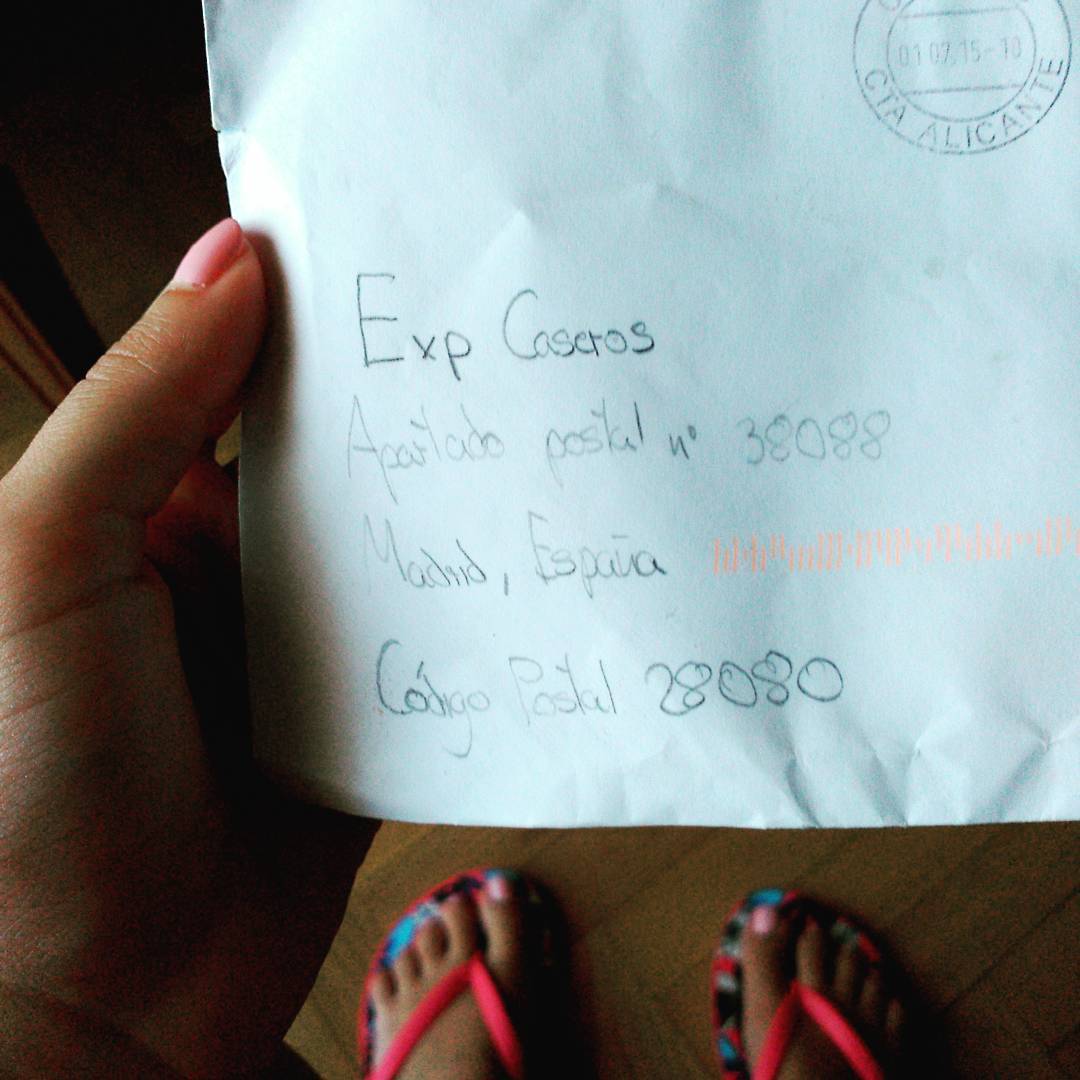 01 07.15-10
CTA ALICANTE
Exp Caseros
Apartado postal nº 38088
Madrid, España
Código Postal 28080